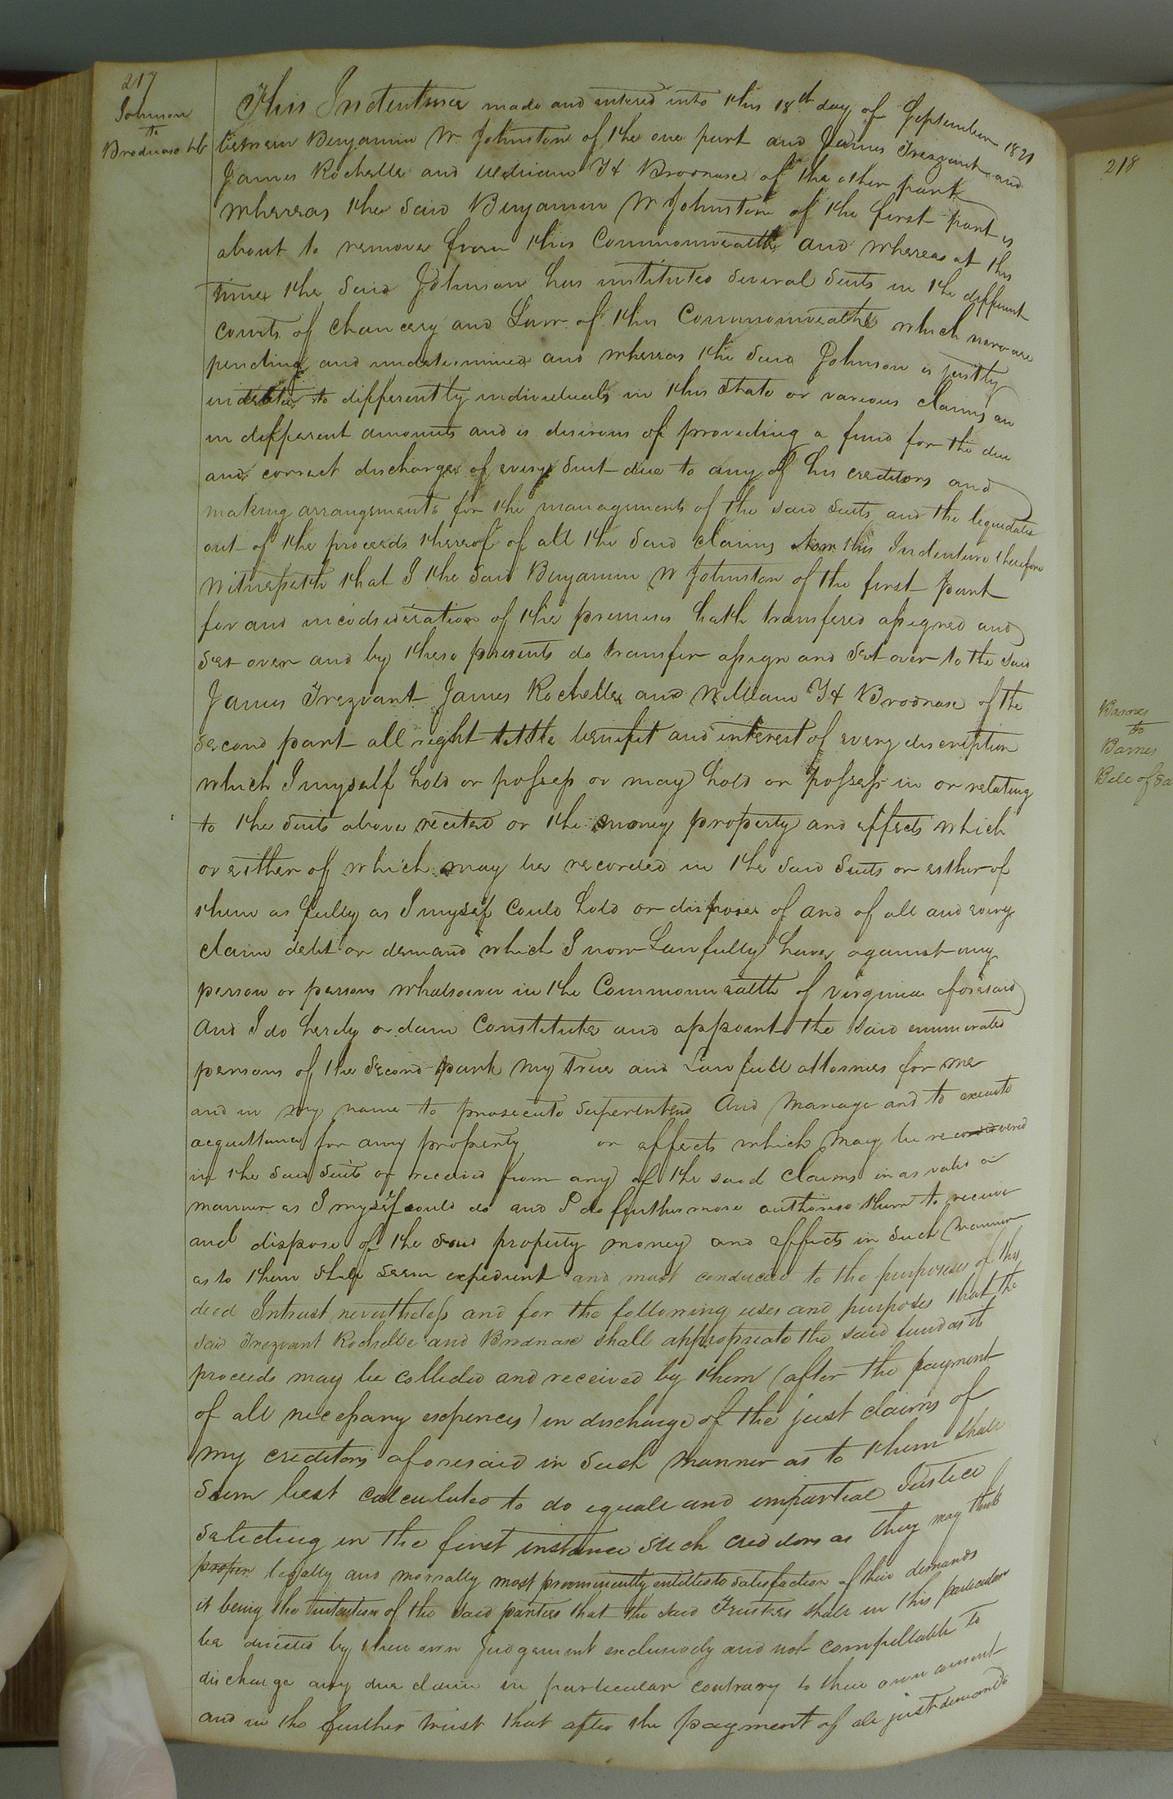 217
Johnson
to
Brodnax &c
This Indenture made and entered into this 18th day of September 1821
between Benjamin W. Johnston of the one part and James Trezvant and
James Rochelle and William H Brodnax of the other part
whereas the said Benjamin W Johnston of the first part is
about to remove from this Commonwealth and whereas at this
time the said Johnson has instituted several Suits in the different
courts of chancery and Law of this Commonwealth which now are
pending and undetermined and whereas the said Johnson is justly
indebted to differently individuals in this State or various claims an
in different amounts and is desirous of providing a fund for the due
and correct discharge of every Suit due to any of his creditors and
making arrangements for the management of the said Suits and the liquidation
out of the proceeds thereof of all the said claims Now this Indenture therefore
Witnesseth that I the said Benjamin W Johnston of the first part
for and in consideration of the premises hath transfered assigned and
set over and by these presents do transfer assign and set over to the said
James Trezvant James Rochelle and William H Brodnax of the
second part all right tittle benifit and interest of every discription
which I myself hold or possess or may hold or possess in or relating
to the suits above recited or the money property and effects which
or either of which may be recorded in the said Suits or either of
them as fully as I myself could hold or dispose of and of all and every
claim debt or demand which I now Lawfully have against any
person or persons whatsoever in the Commonwealth of Virginia aforesaid
And I do hereby ordain Constitute and appoint the said enumerated
persons of the Second part my true and Lawfull attornies for me
and in my name to prosecute Superintend And Manage and to execute
acquittance for any property or effects which may be recovered
in the said Suits or received from any of the said claims in as valid a
manner as I myself could do and I do furthermore authorise them to receive
and dispose of the said property money and effects in such manner
as to them shall seem expedient and most conducive to the purposes of this
deed Intrust nevertheless and for the following uses and purposes that the
said Trezvant Rochelle and Brodnax shall appropriate the said fund as it
proceeds may be collected and received by them (after the payment
of all necessary expences) in discharge of the just claims of
my creditors aforesaid in such manner as to them shall
seem best calculated to do equall and impartial Justice
selecting in the first instance such creditors as they may think
proper legally and morally most prominently entitled to satisfaction of their demands
it being the intention of the said parties that the said Trustees shall in this particular
be directed by their own Judgement exclusively and not compellable to
discharge any due claim in particular contrary to their own consent
and in the further trust that after the payment of all just demands
218
Barnes
to
Barnes
Bill of Sa